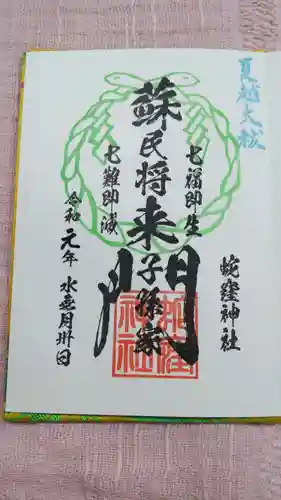 夏越大祓
七福即生
蘇民将来子孫家門
七難即滅
蛇窪神社
令和元年水無月卅日
蛇窪神社